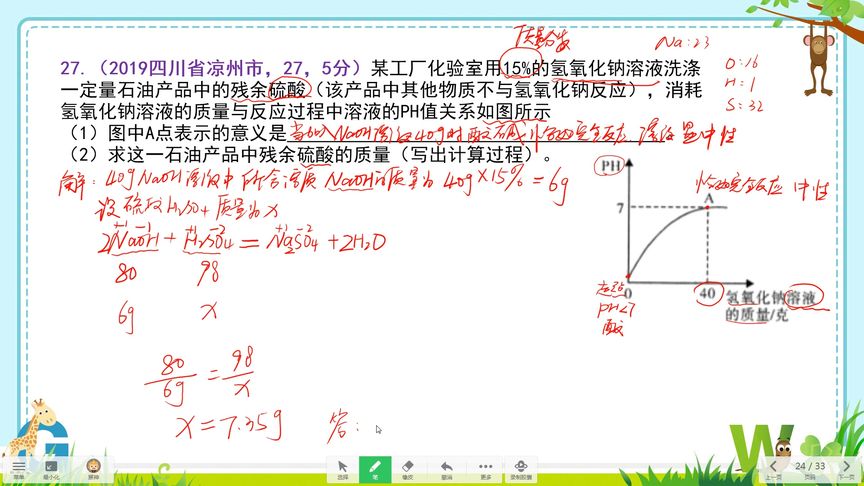 质量分数
Na:23
O:16
H:1
S:32
27.（2019四川省凉州市，27，5分）某工厂化验室用15%的氢氧化钠溶液洗涤
一定量石油产品中的残余硫酸（该产品中其他物质不与氢氧化钠反应），消耗
氢氧化钠溶液的质量与反应过程中溶液的PH值关系如图所示
（1）图中A点表示的意义是当加入NaOH溶液40g时酸碱恰好完全反应 溶液显中性
（2）求这一石油产品中残余硫酸的质量（写出计算过程）。
解：40gNaOH溶液中所含溶质NaOH的质量为40g×15%=6g
设硫酸H2SO4质量为x
+1 -1 +1 -2 +1 -2
2NaOH+H2SO4=Na2SO4+2H2O
80 98
6g x
80/6g=98/x
x=7.35g 答：
PH
恰好完全反应 中性
7
A
起始0
40
氢氧化钠溶液
的质量/克
PH<7
酸
W
菜单
最小化
选择
笔
橡皮
撤消
更多
录制胶囊
上一页
24 / 33
页码
下一页